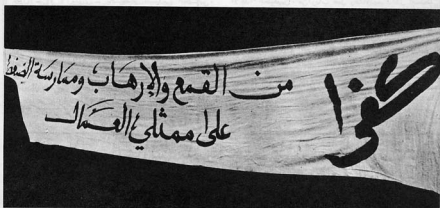 كفوا
من القمع والإرهاب وممارسة الضغط
على ممثلي العمال